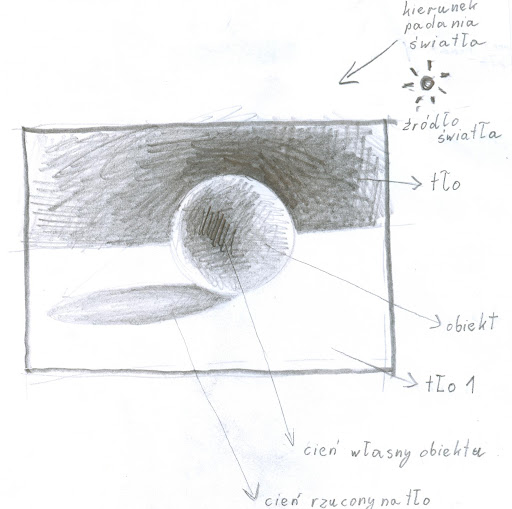 kierunek
padania
światła
źródło
światła
tło
obiekt
tło 1
cień własny obiektu
cień rzucony na tło